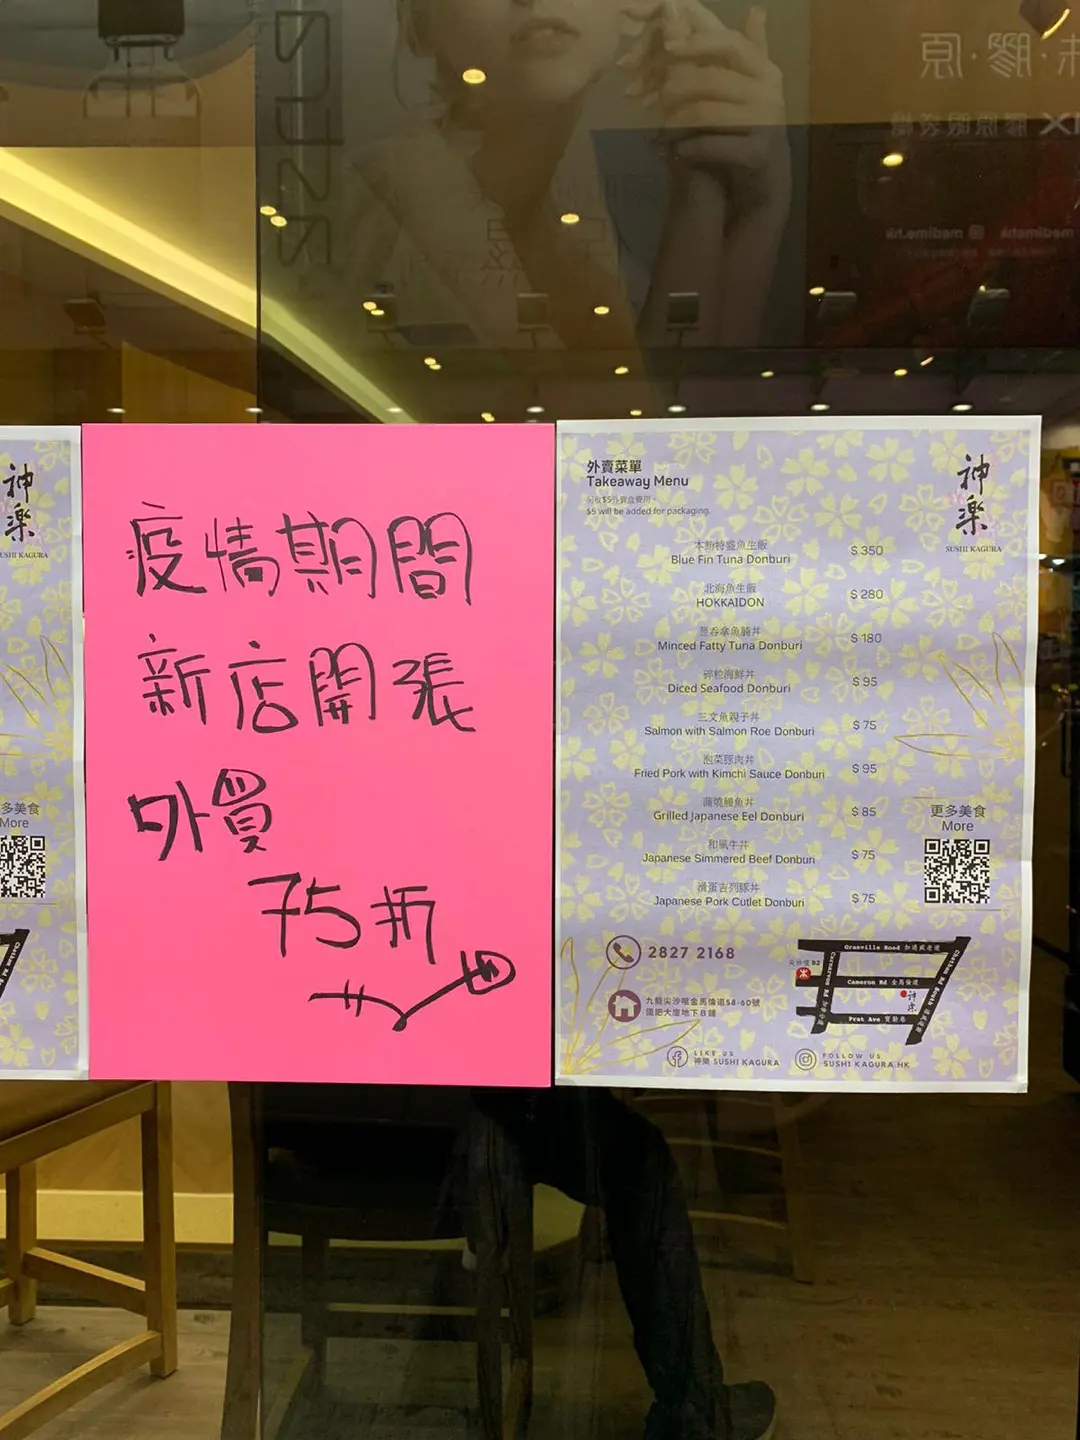 神楽
SUSHI KAGURA
多美食
More
疫情期間
新店開張
外買
75折
外賣菜單
Takeaway Menu
$5 will be added for packaging.
神楽
SUSHI KAGURA
Blue Fin Tuna Donburi
$ 350
北海魚生飯
HOKKAIDON
$ 280
Minced Fatty Tuna Donburi
$ 180
碎粒海鮮丼
Diced Seafood Donburi
$ 95
三文魚親子丼
Salmon with Salmon Roe Donburi
$ 75
泡菜豚肉丼
Fried Pork with Kimchi Sauce Donburi
$ 95
蒲燒鰻魚丼
Grilled Japanese Eel Donburi
$ 85
和風牛丼
Japanese Simmered Beef Donburi
$ 75
滑蛋吉列豚丼
Japanese Pork Cutlet Donburi
$ 75
更多美食
More
2827 2168
九龍尖沙咀金馬倫道58-60號
地下B鋪
Granville Road 加連威老道
尖沙咀 B2
Carnarvon Rd
Cameron Rd 金馬倫道
神楽
Prat Ave 寶勒巷
Chatham Rd South
LIKE US
神樂 SUSHI KAGURA
FOLLOW US
SUSHI KAGURA.HK